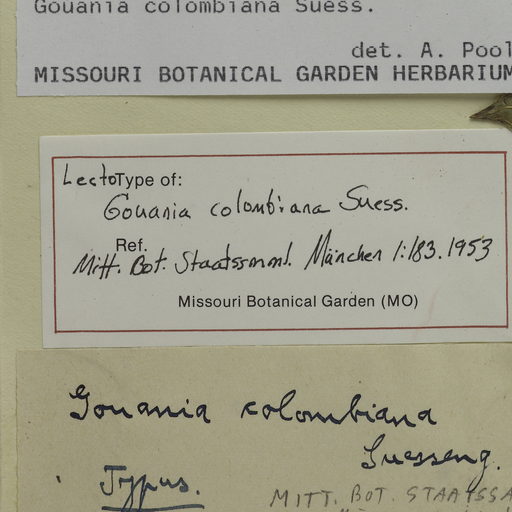 Gouania colombiana Suess.
det. A. Pool
MISSOURI BOTANICAL GARDEN HERBARIUM
LectoType of:
Gouania colombiana Suess.
Ref.
Mitt. Bot. Staatssmml. München 1:183.1953
Missouri Botanical Garden (MO)
Gouania colombiana
Suesseng.
Typus.
MITT. BOT. STAATSSA